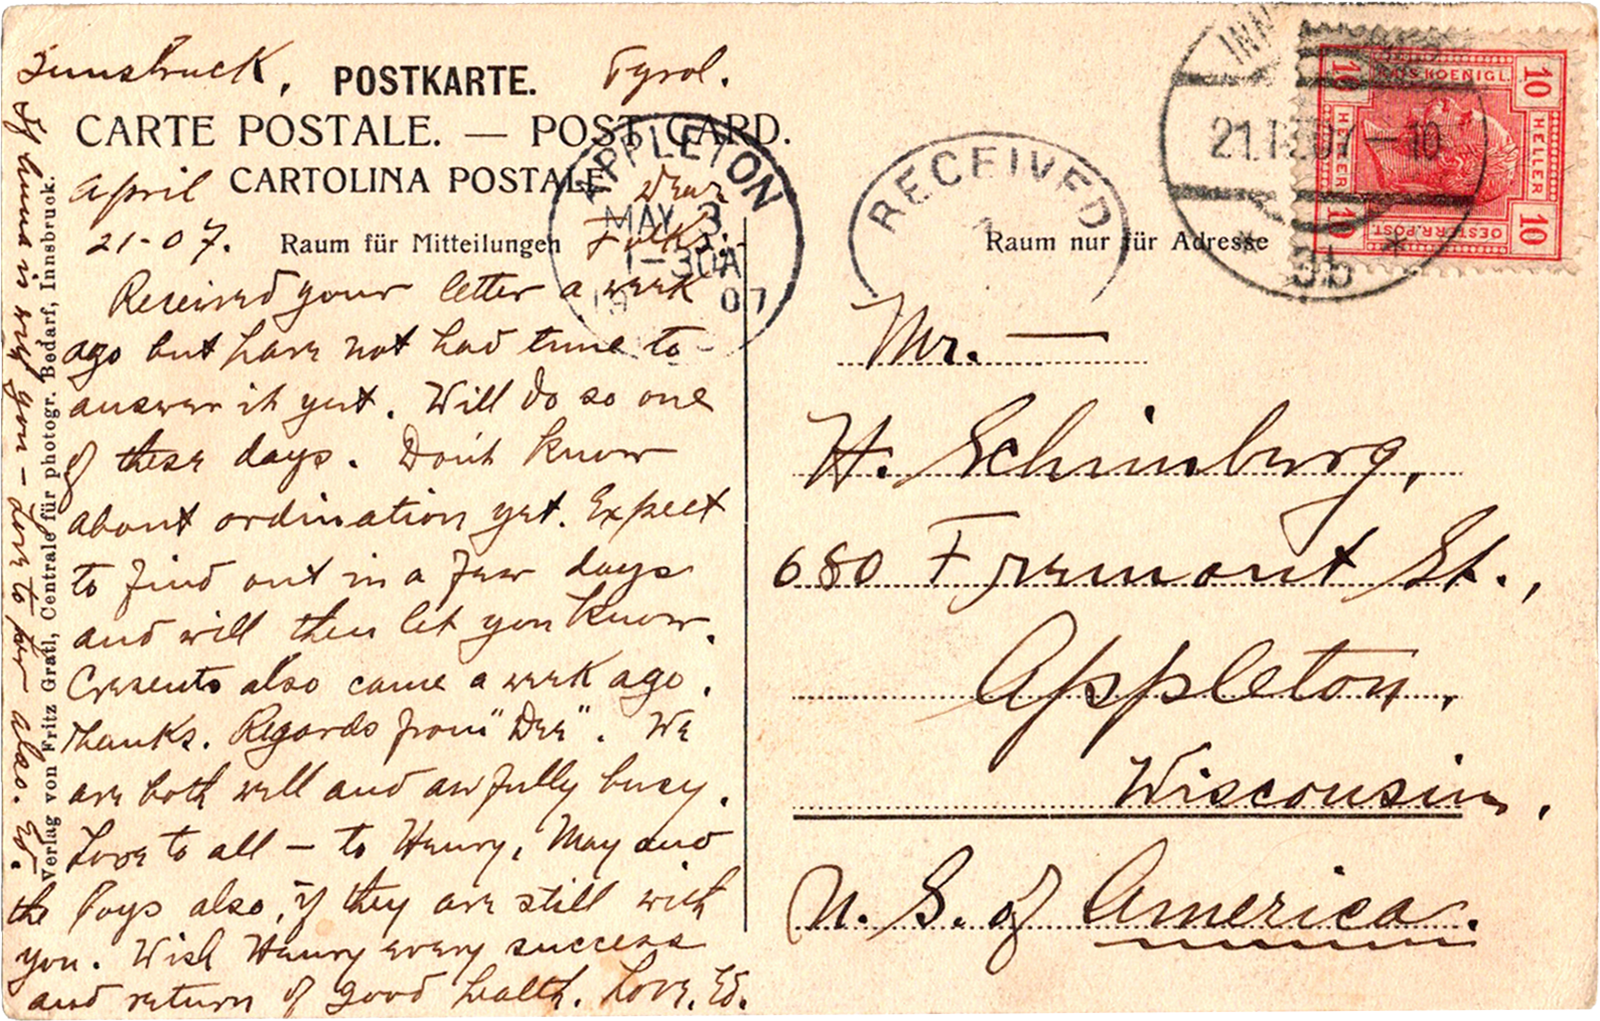 Innsbruck, Tyrol.
POSTKARTE.
CARTE POSTALE. — POST CARD.
CARTOLINA POSTALE
April
21-07.
Raum für Mitteilungen
Dear
Folks:-
Received your letter a week
ago but have not had time to
answer it yet. Will do so one
of these days. Don't know
about ordination yet. Expect
to find out in a few days
and will then let you know.
Cresents also came a week ago.
Thanks. Regards from "Dee". We
are both well and awfully busy.
Love to all — to Henry, May and
the boys also, if they are still with
you. Wish Henry every success
and return of good health. Love, Ed.
If Anna is with you - love to her also. Ed.
Verlag von Fritz Gratl, Centrale für photogr. Bedarf, Innsbruck.
APPLETON
MAY 3
1-30A
19 07
RECEIVED
1
Raum nur für Adresse
INN
21.IV.07-10
* 9b *
KAIS.KOENIGL.
10 HELLER 10
10 HELLER 10
OESTERR.POST.
Mr. —
H. Schinburg,
680 Fremont St.,
Appleton,
Wisconsin,
U. S. of America.